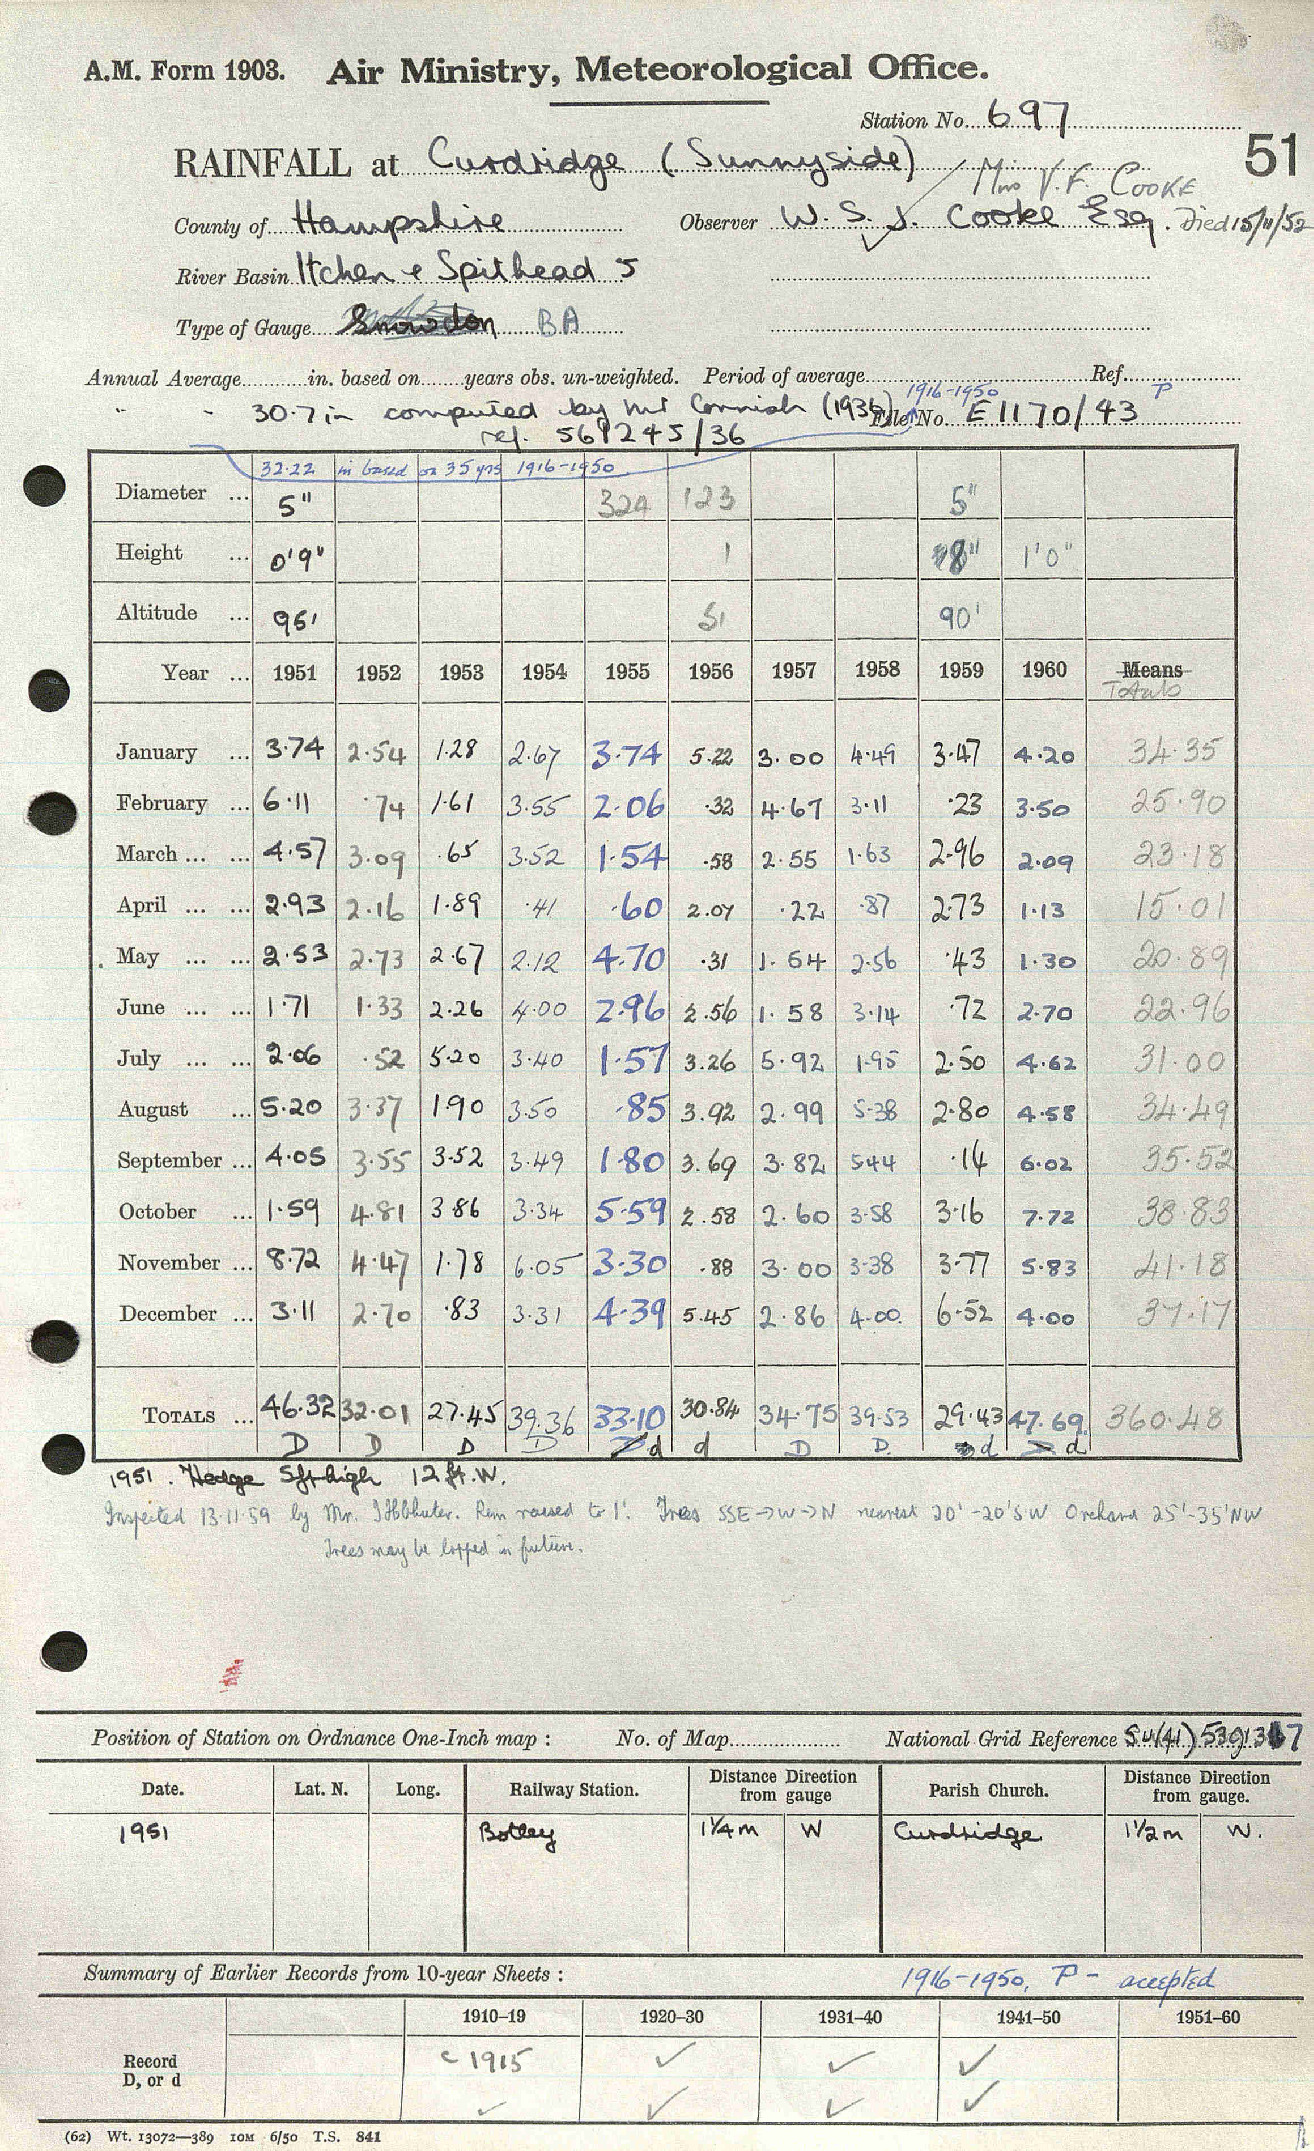 A.M. Form 1903. Air Ministry, Meteorological Office.
Station No. 697
51
RAINFALL at Curdridge (Sunnyside)
Mrs V.F. COOKE
County of Hampshire Observer W. S. J. Cooke Esq. Died 15/11/52
River Basin Itchen & Spithead 5
Type of Gauge Snowdon BA
Annual Average in. based on years obs. un-weighted. Period of average 1916-1950 Ref. P
" " 30.7 in computed by Mr Cornish (1936) File No. E1170/43
ref. 561245/36
32.22 in based on 35 yrs 1916-1950
Diameter ... 5" 324 123 5"
Height ... 0'9" 1 8" 1'0"
Altitude ... 95' 51 90'
Year ... 1951 1952 1953 1954 1955 1956 1957 1958 1959 1960 Means Totals
January ... 3.74 2.54 1.28 2.67 3.74 5.22 3.00 4.49 3.47 4.20 34.35
February ... 6.11 .74 1.61 3.55 2.06 .32 4.67 3.11 .23 3.50 25.90
March ... ... 4.57 3.09 .65 3.52 1.54 .58 2.55 1.63 2.96 2.09 23.18
April ... ... 2.93 2.16 1.89 .41 .60 2.07 .22 .87 2.73 1.13 15.01
May ... ... 2.53 2.73 2.67 2.12 4.70 .31 1.54 2.56 .43 1.30 20.89
June ... ... 1.71 1.33 2.26 4.00 2.96 2.56 1.58 3.14 .72 2.70 22.96
July ... ... 2.06 .52 5.20 3.40 1.57 3.26 5.92 1.95 2.50 4.62 31.00
August ... 5.20 3.37 1.90 3.50 .85 3.92 2.99 5.38 2.80 4.58 34.49
September ... 4.05 3.55 3.52 3.49 1.80 3.69 3.82 5.44 .14 6.02 35.52
October ... 1.59 4.81 3.86 3.34 5.59 2.58 2.60 3.58 3.16 7.72 38.83
November ... 8.72 4.47 1.78 6.05 3.30 .88 3.00 3.38 3.77 5.83 41.18
December ... 3.11 2.70 .83 3.31 4.39 5.45 2.86 4.00 6.52 4.00 37.17
TOTALS ... 46.32 32.01 27.45 39.36 33.10 30.84 34.75 39.53 29.43 47.69 360.48
D D D D d d D D d d
1951. Hedge 5ft high 12ft. W.
Inspected 13.11.59 by Mr. Rim raised to 1'. Trees SSE→W→N nearest 20'-20' SW Orchard 25'-35' NW
Trees may be lopped in future.
Position of Station on Ordnance One-Inch map : No. of Map National Grid Reference SU(41)
Date. Lat. N. Long. Railway Station. Distance from Direction gauge Parish Church. Distance from Direction gauge.
1951 Botley 1¼m W Curdridge 1½m W.
Summary of Earlier Records from 10-year Sheets : 1916-1950. P - accepted
1910–19 1920–30 1931–40 1941–50 1951–60
Record D, or d c 1915 ✓ ✓ ✓
✓ ✓ ✓ ✓
(62) Wt. 13072—389 10M 6/50 T.S. 841